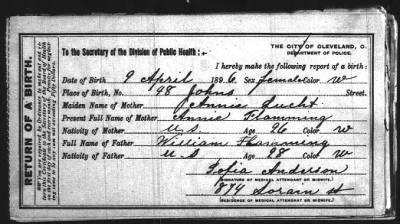 THE CITY OF CLEVELAND, O.
DEPARTMENT OF POLICE.
To the Secretary of the Division of Public Health:
I hereby make the following report of a birth:
Date of Birth 9 April 1896 Sex female Color W
Place of Birth, No. 98 Johns Street.
Maiden Name of Mother Annie Lucht
Present Full Name of Mother Annie Flamming
Nativity of Mother U S Age 26 Color W
Full Name of Father William Flamming
Nativity of Father U S Age 28 Color W
Sofia Anderson
(SIGNATURE OF MEDICAL ATTENDANT OR MIDWIFE.)
874 Lorain st
(RESIDENCE OF MEDICAL ATTENDANT OR MIDWIFE.)
RETURN OF A BIRTH.